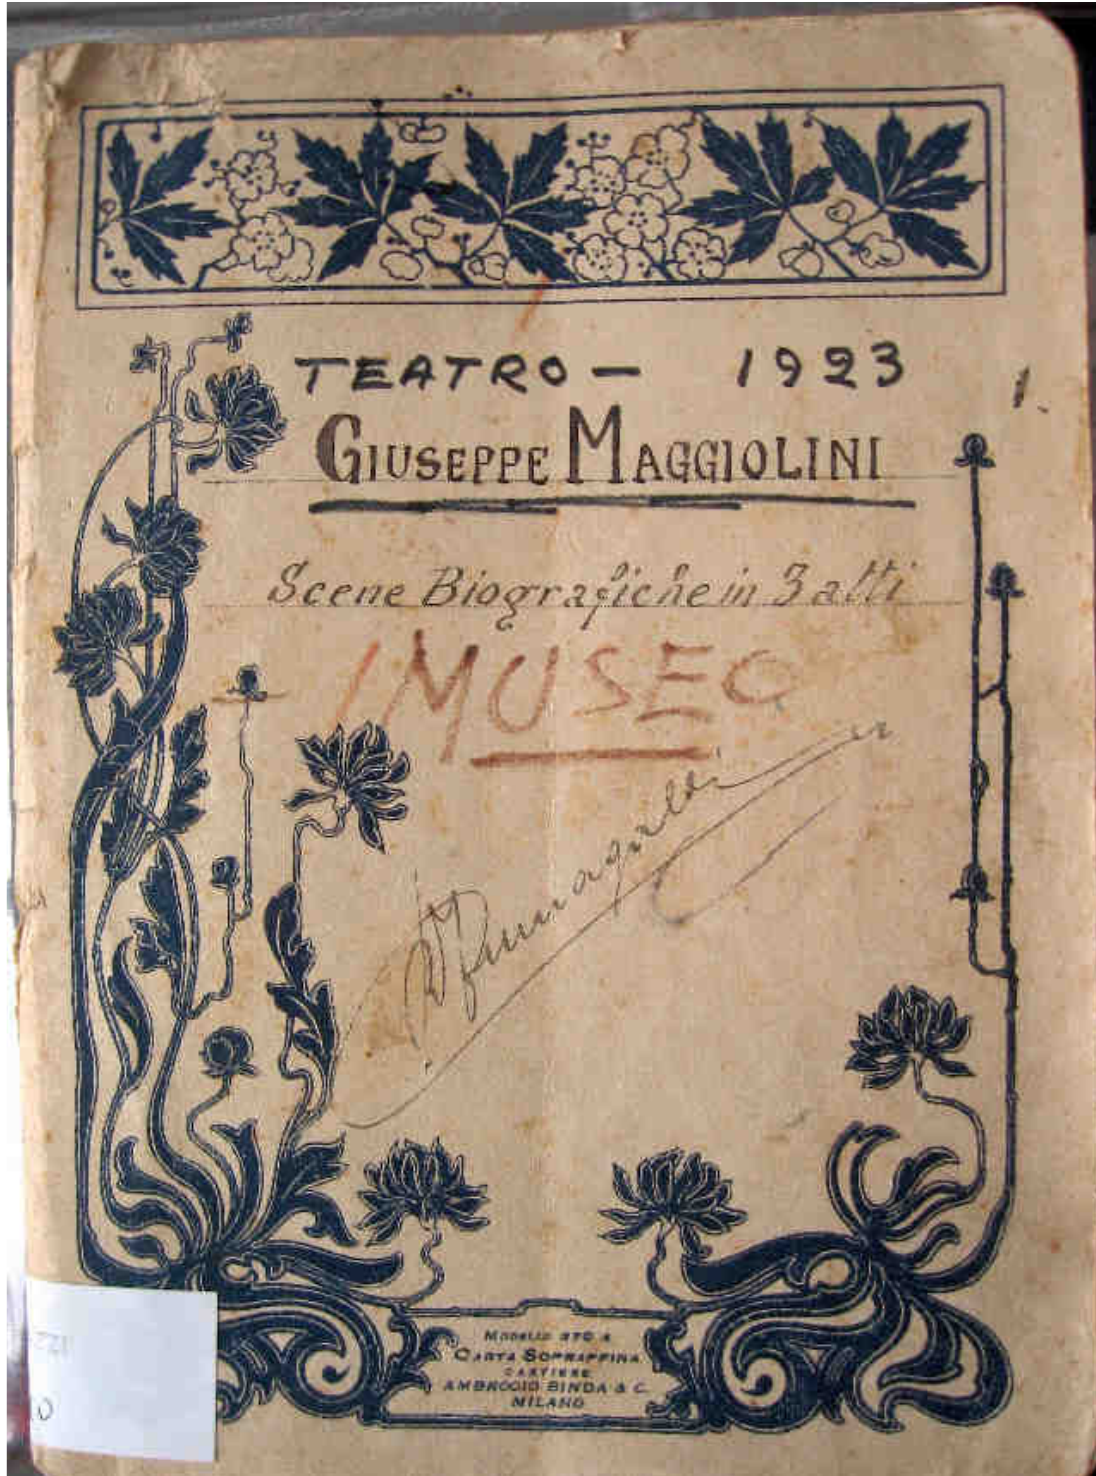 TEATRO — 1923
1.
GIUSEPPE MAGGIOLINI
Scene Biografiche in 3 atti
MUSEO
Fumagalli
CARTA SOPRAFFINA
CARTIERE
AMBROGIO BINDA & C.
MILANO